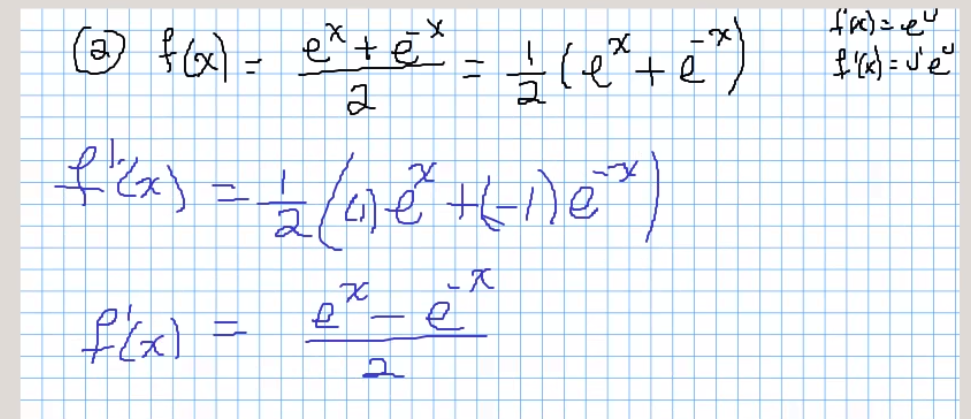 (a) f(x) = (e^x + e^-x)/2 = 1/2 (e^x + e^-x)
f(x) = e^u
f'(x) = u' e^u
f'(x) = 1/2 ((1)e^x + (-1)e^-x)
f'(x) = (e^x - e^-x)/2